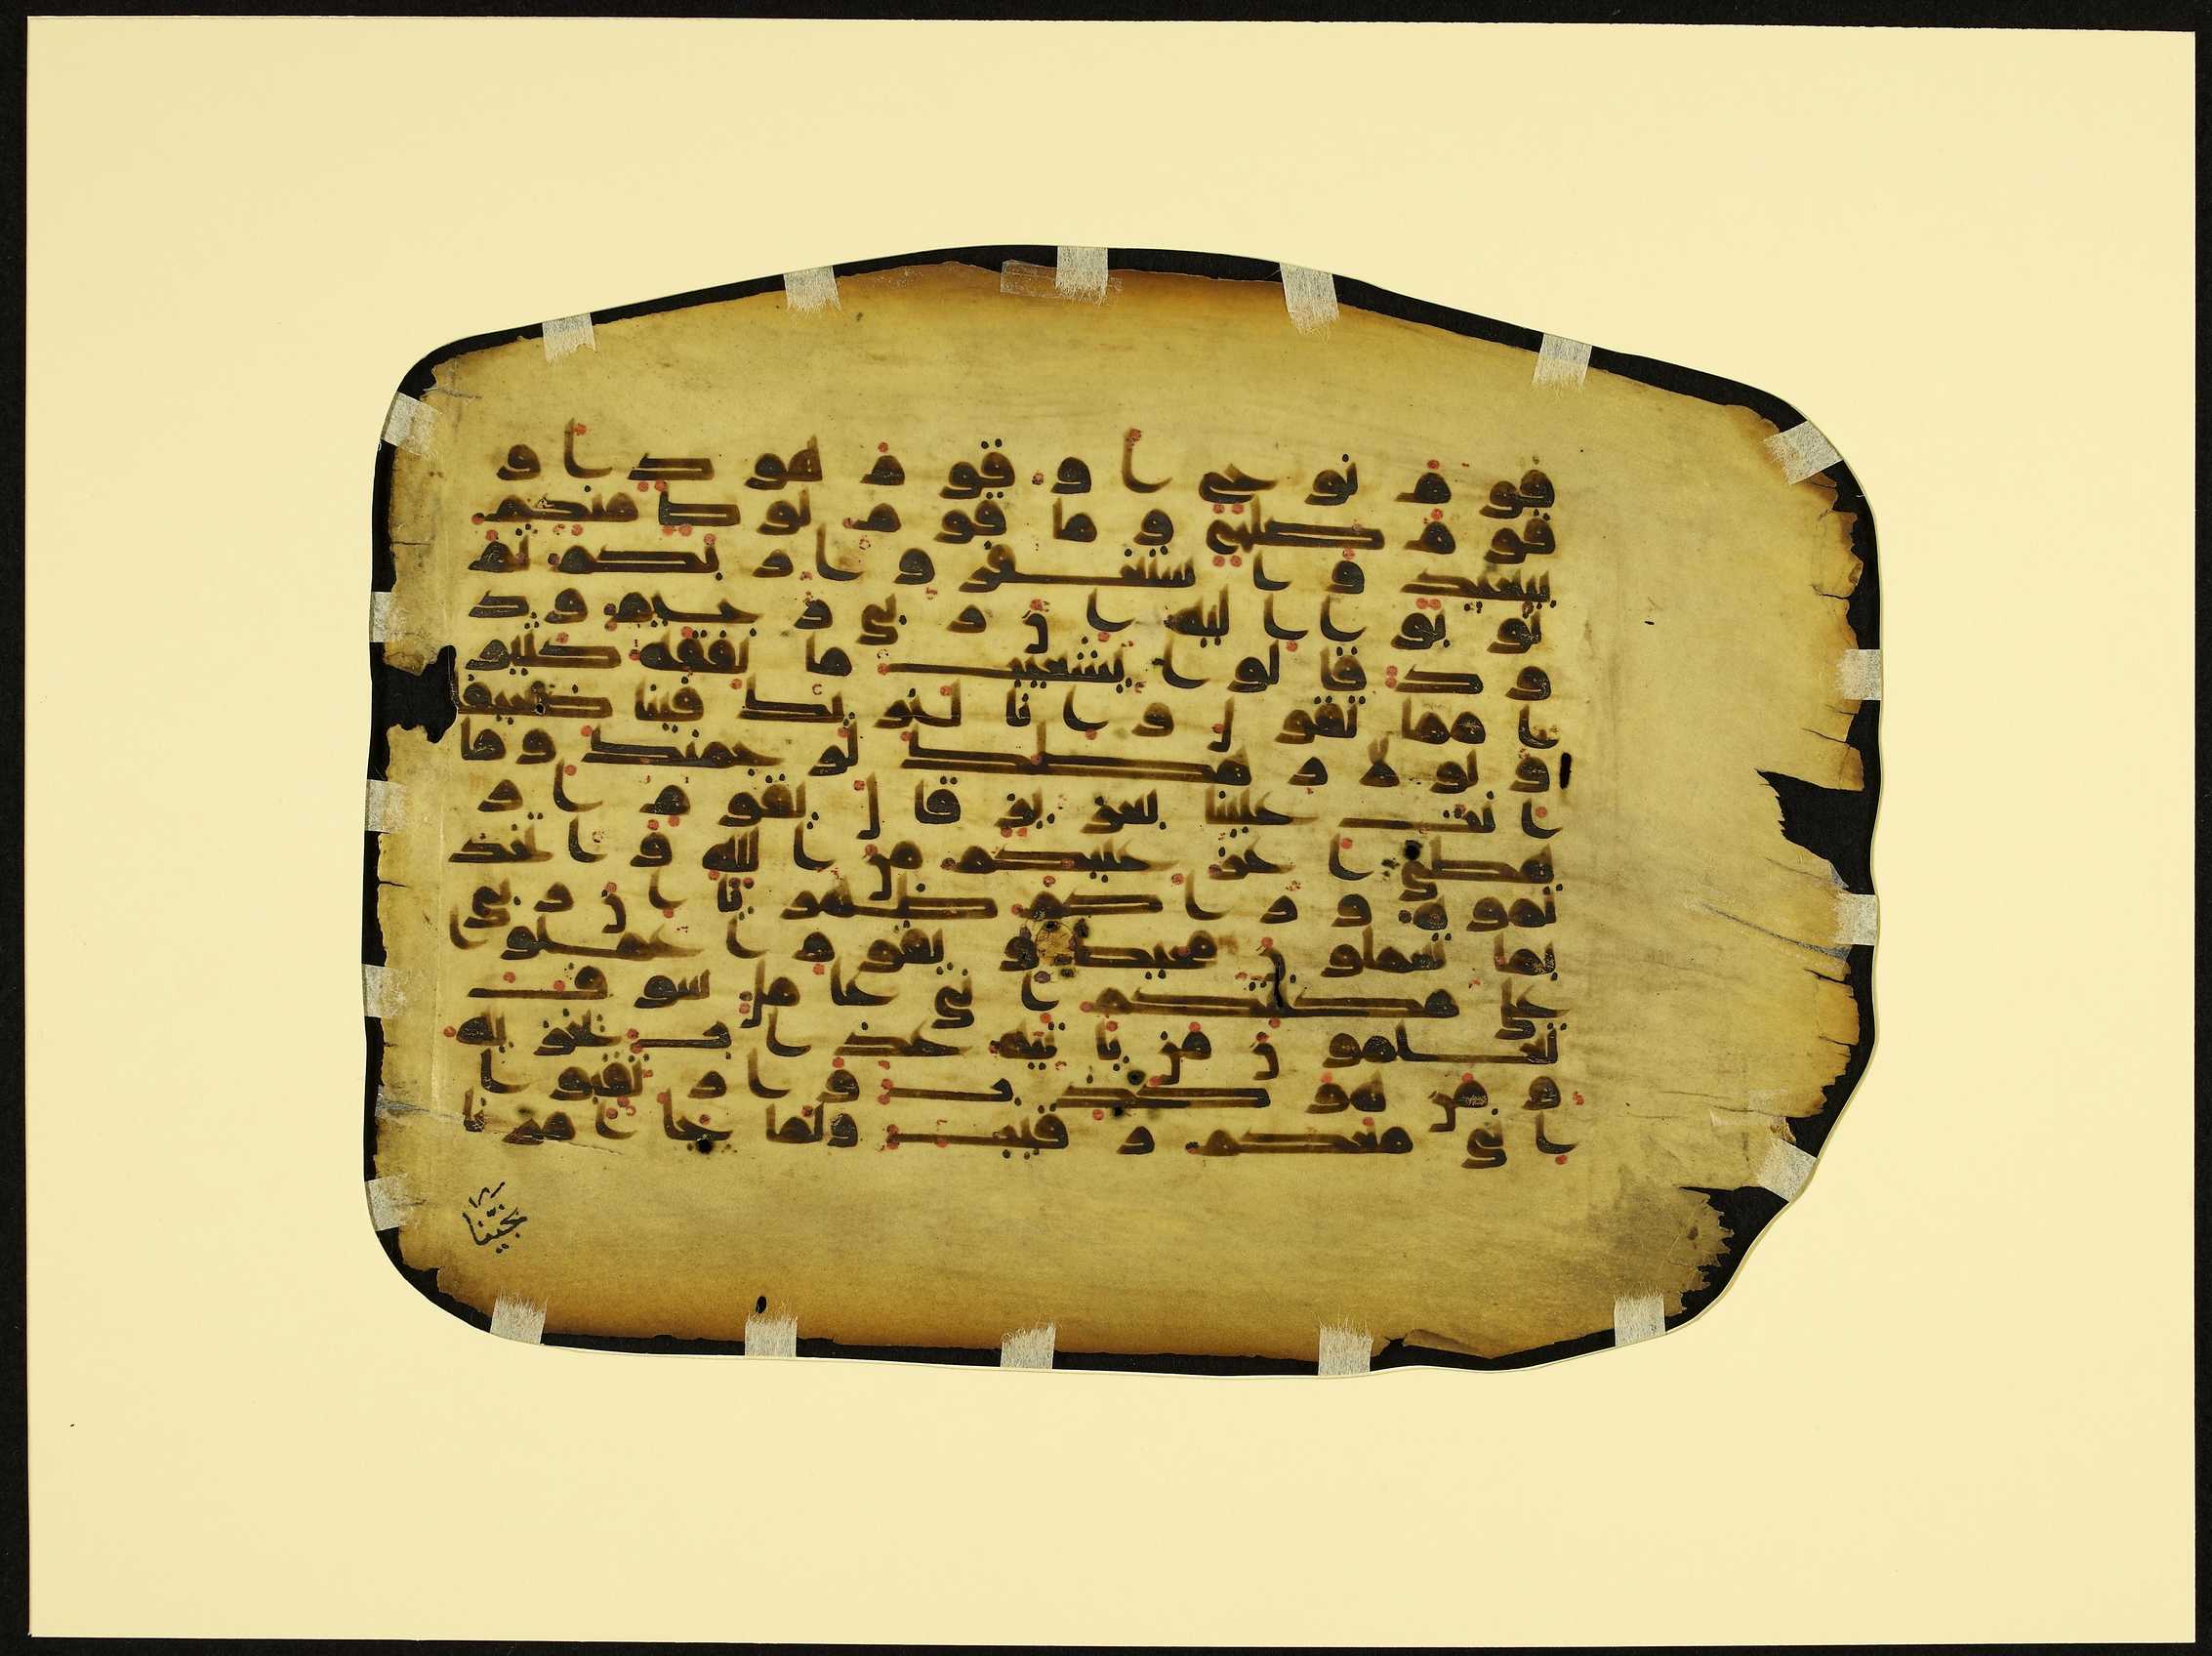 قوم نوح او قوم هود او
قوم صلح وما قوم لوط منكم
ببعيد واستغفروا ربكم ثم
توبوا اليه ان ربي رحيم ود
ود قالوا يشعيب ما نفقه كثير
ا مما تقول وانا لنريك فينا ضعيفا
ولولا رهطك لرجمنك وما
انت علينا بعزيز قال يقوم ار
هطي اعز عليكم من الله واتخذ
تموه وراكم ظهريا ان ربي
بما تعملون محيط ويقوم اعملوا
على مكانتكم اني عامل سوف
تعلمون من ياتيه عذاب يخزيه
ومن هو كذب وارتقبوا
اني معكم رقيب ولما جا امرنا
نجّينا